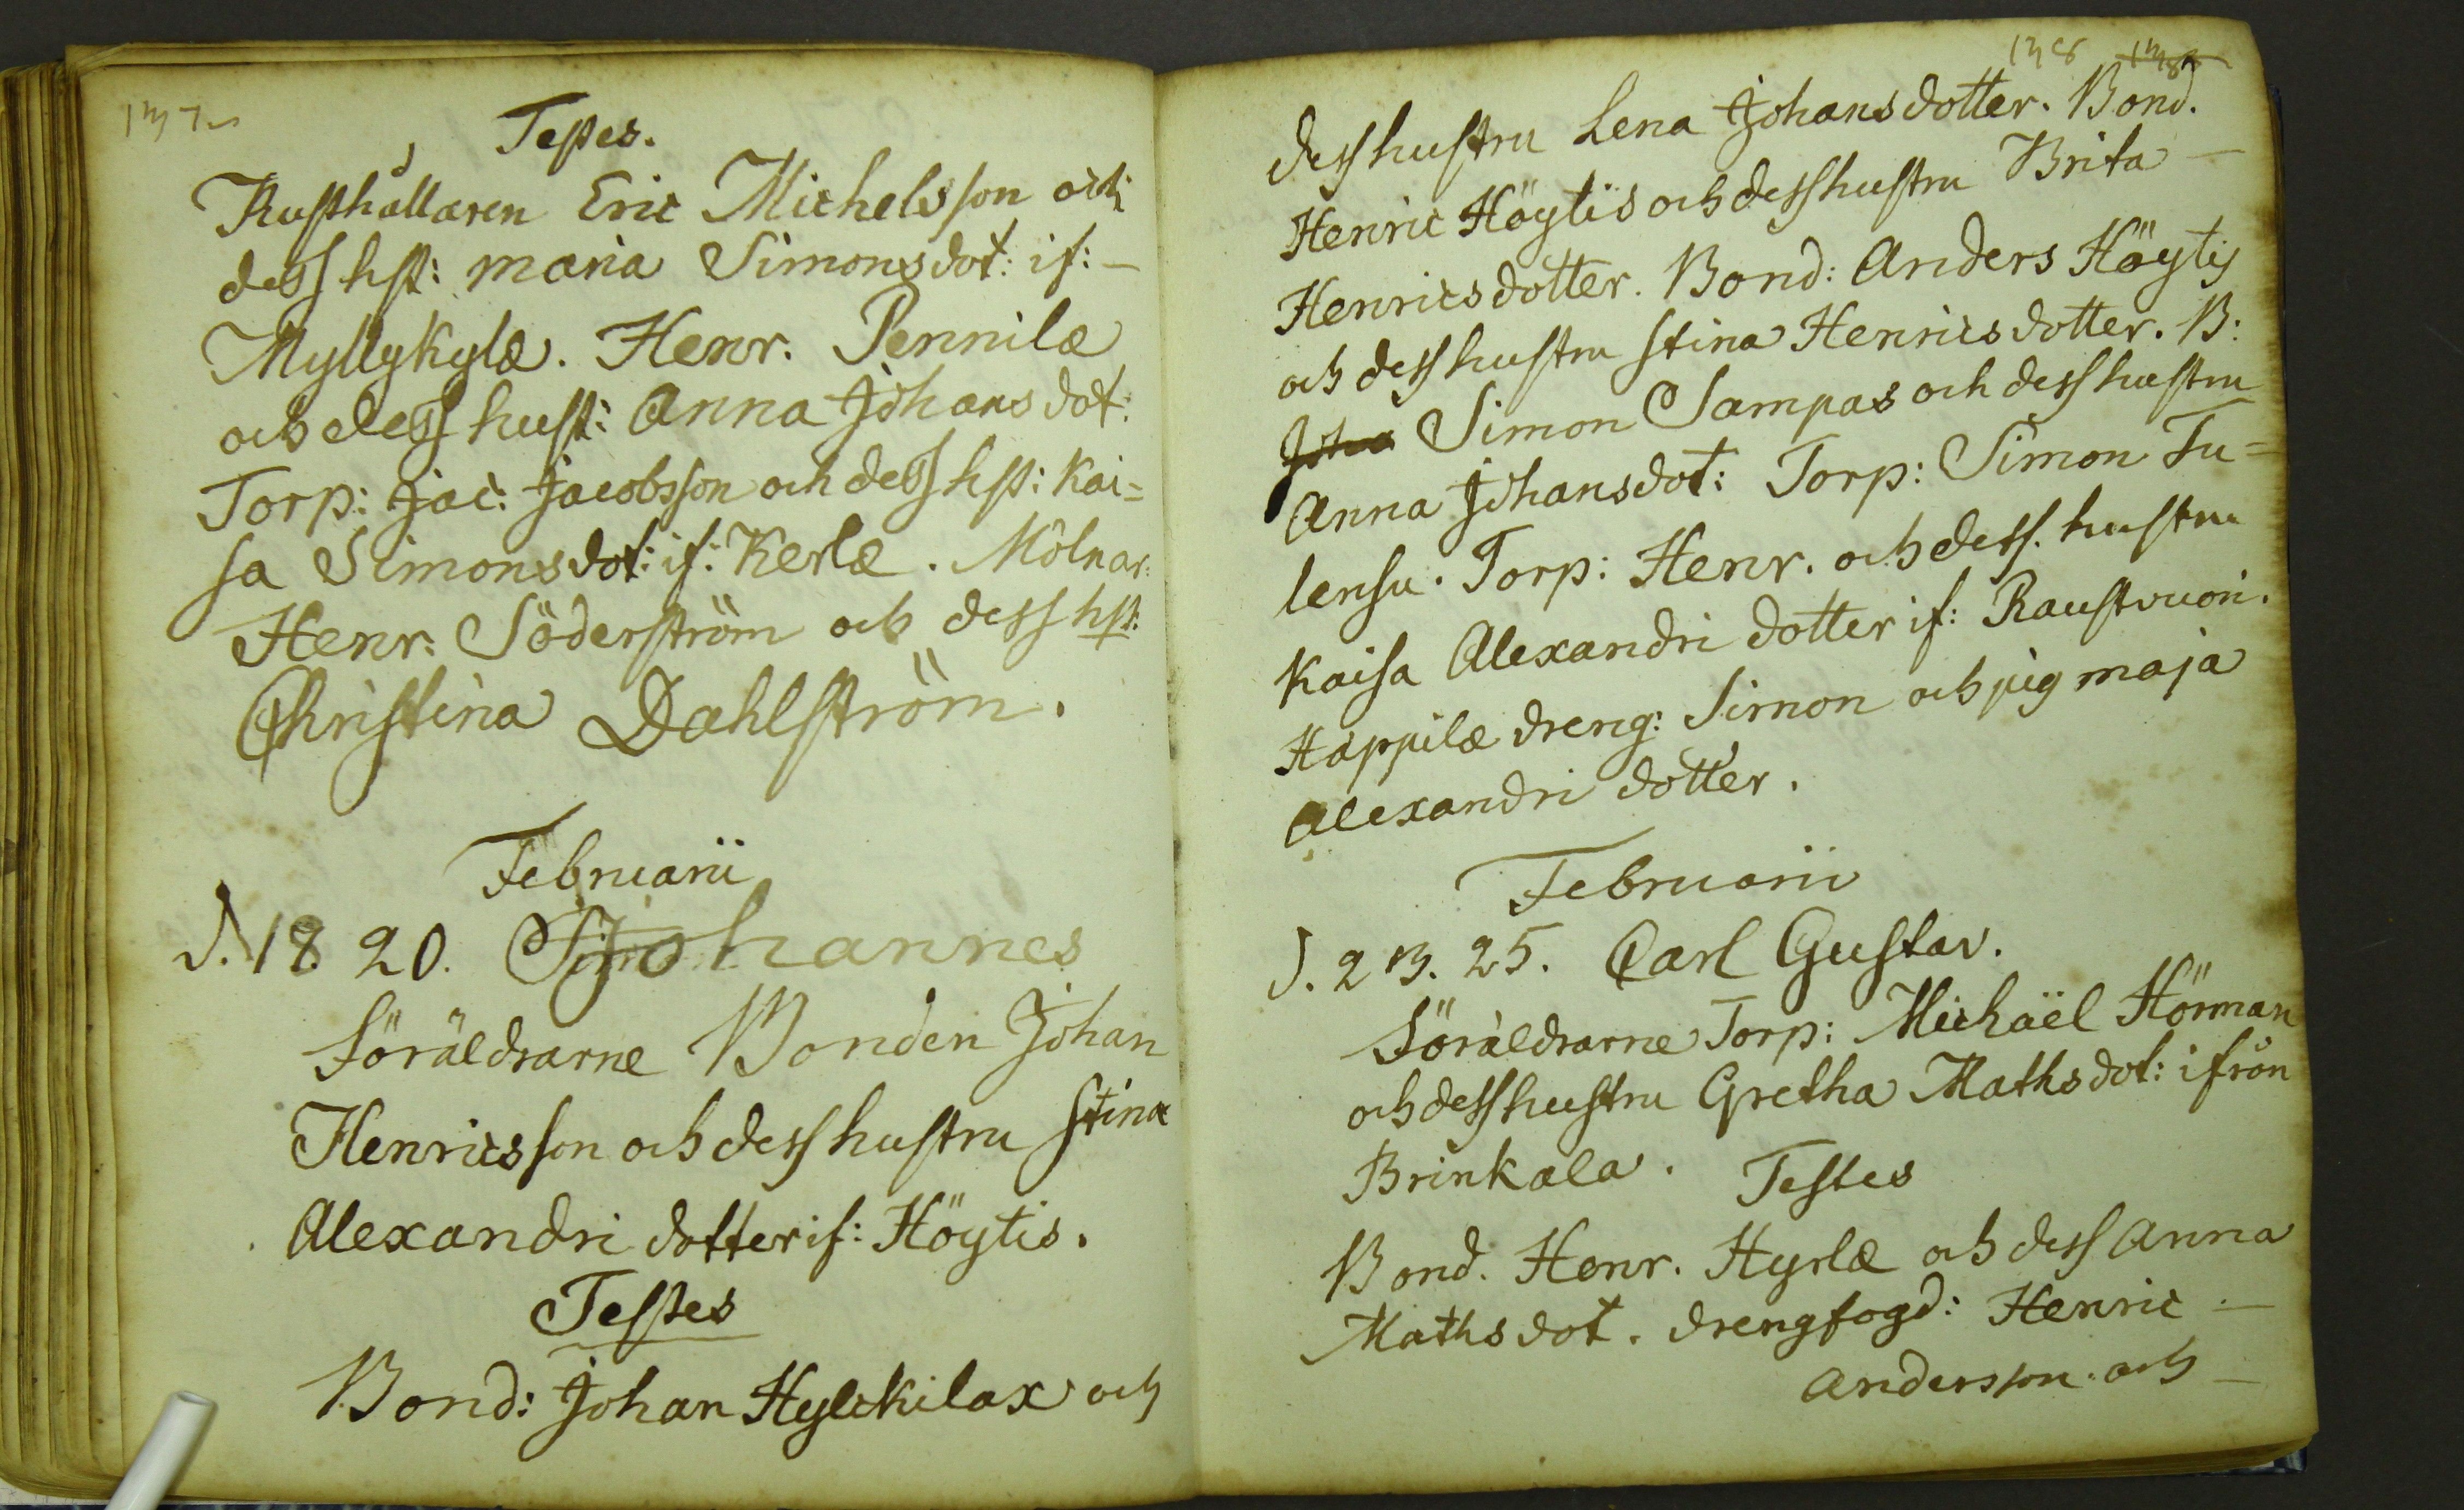 137
Testes.
Rusthållaren Eric Michelsson och
dess hst: maria Simonsdot: if: –
Myllykylæ. Henr. Pennilæ
och dess hust: Anna Johansdot:
Torp: Jac: Jacobsson och dess hst: Kai=
sa Simonsdot: if: Kerlæ. Mölnar:
Henr: Söderström och dess hst:
Christina Dahlström.
Februarii
d. 18. 20. Johannes
Föräldrarne Bonden Johan
Henricsson och dess hustru Stina
Alexandri dotter if: Höytis.
Testes
Bond: Johan Hylckilax och
138 138
dess hustru Lena Johansdotter. Bond.
Henric Höytis och dess hustru Brita –
Henricsdotter. Bond: Anders Höytis
och dess hustru Stina Henricsdotter. B:
Joha Simon Sampas och dess hustru
Anna Johansdot: Torp: Simon Tu=
lensu. Torp: Henr. och dess. hustru
Kaisa Alexandri dotter if: Raustvuori.
Happilæ dreng: Simon och pig maja
Alexandri dotter.
Februarii
d. 23. 25. Carl Gustav.
Föräldrarne Torp: Michaël Hörman
och dess hustru Gretha Mathsdot: ifrån
Brinkala. Testes
Bond. Henr. Hyrlæ och dess Anna
Mathsdot. drengfogd: Henric –
Andersson. och –